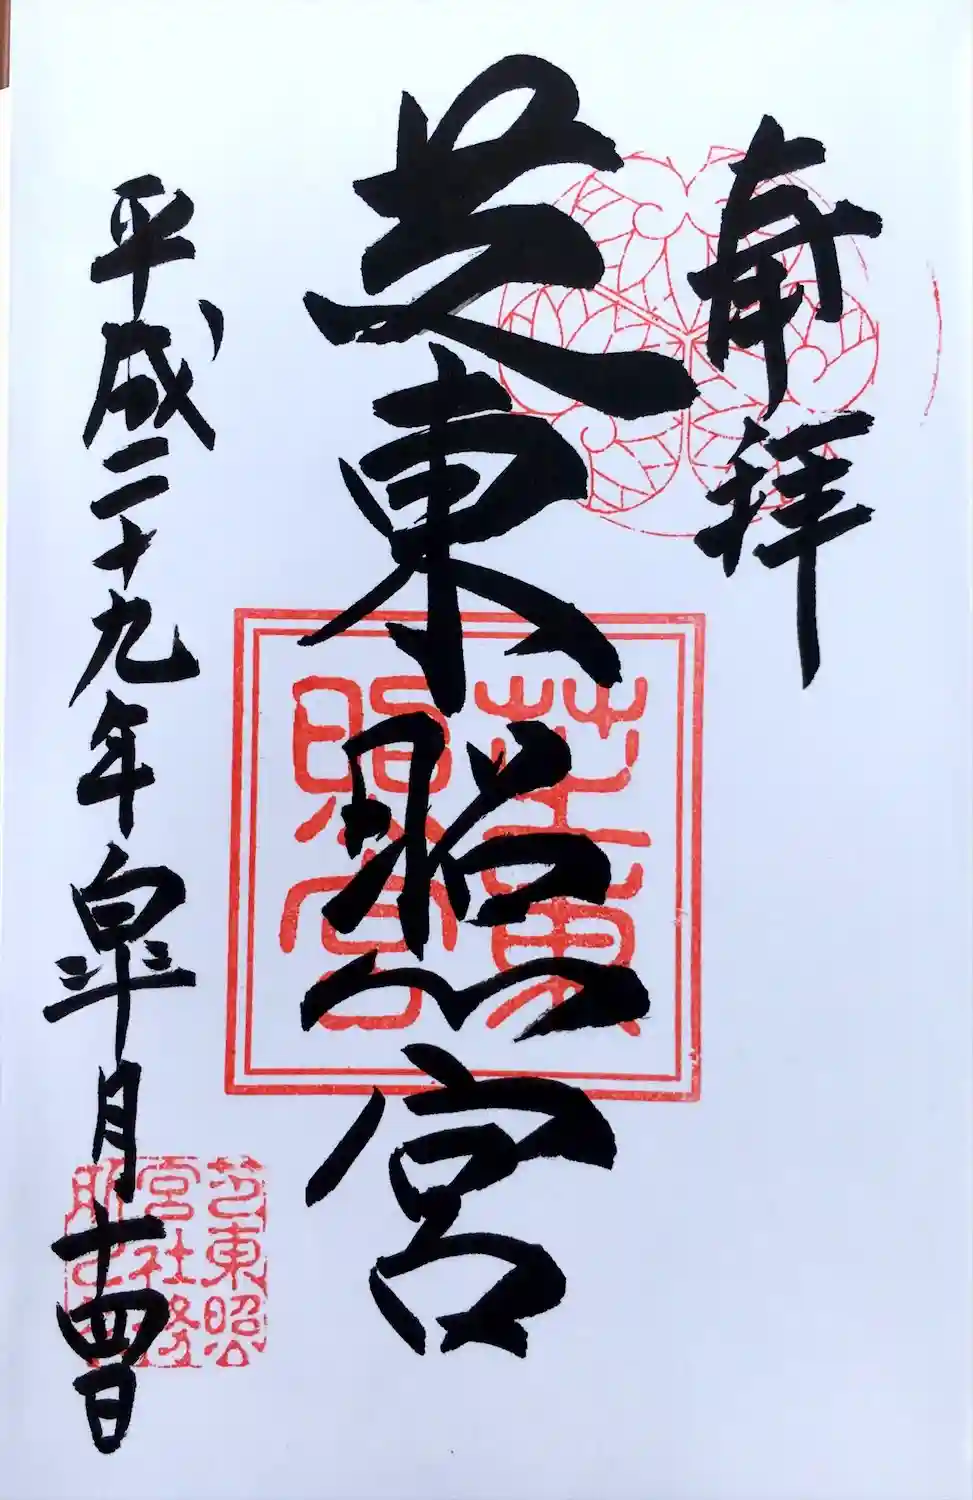 奉拝
芝東照宮
平成二十九年皐月十四日
芝東照
宮社務
芝東
照宮